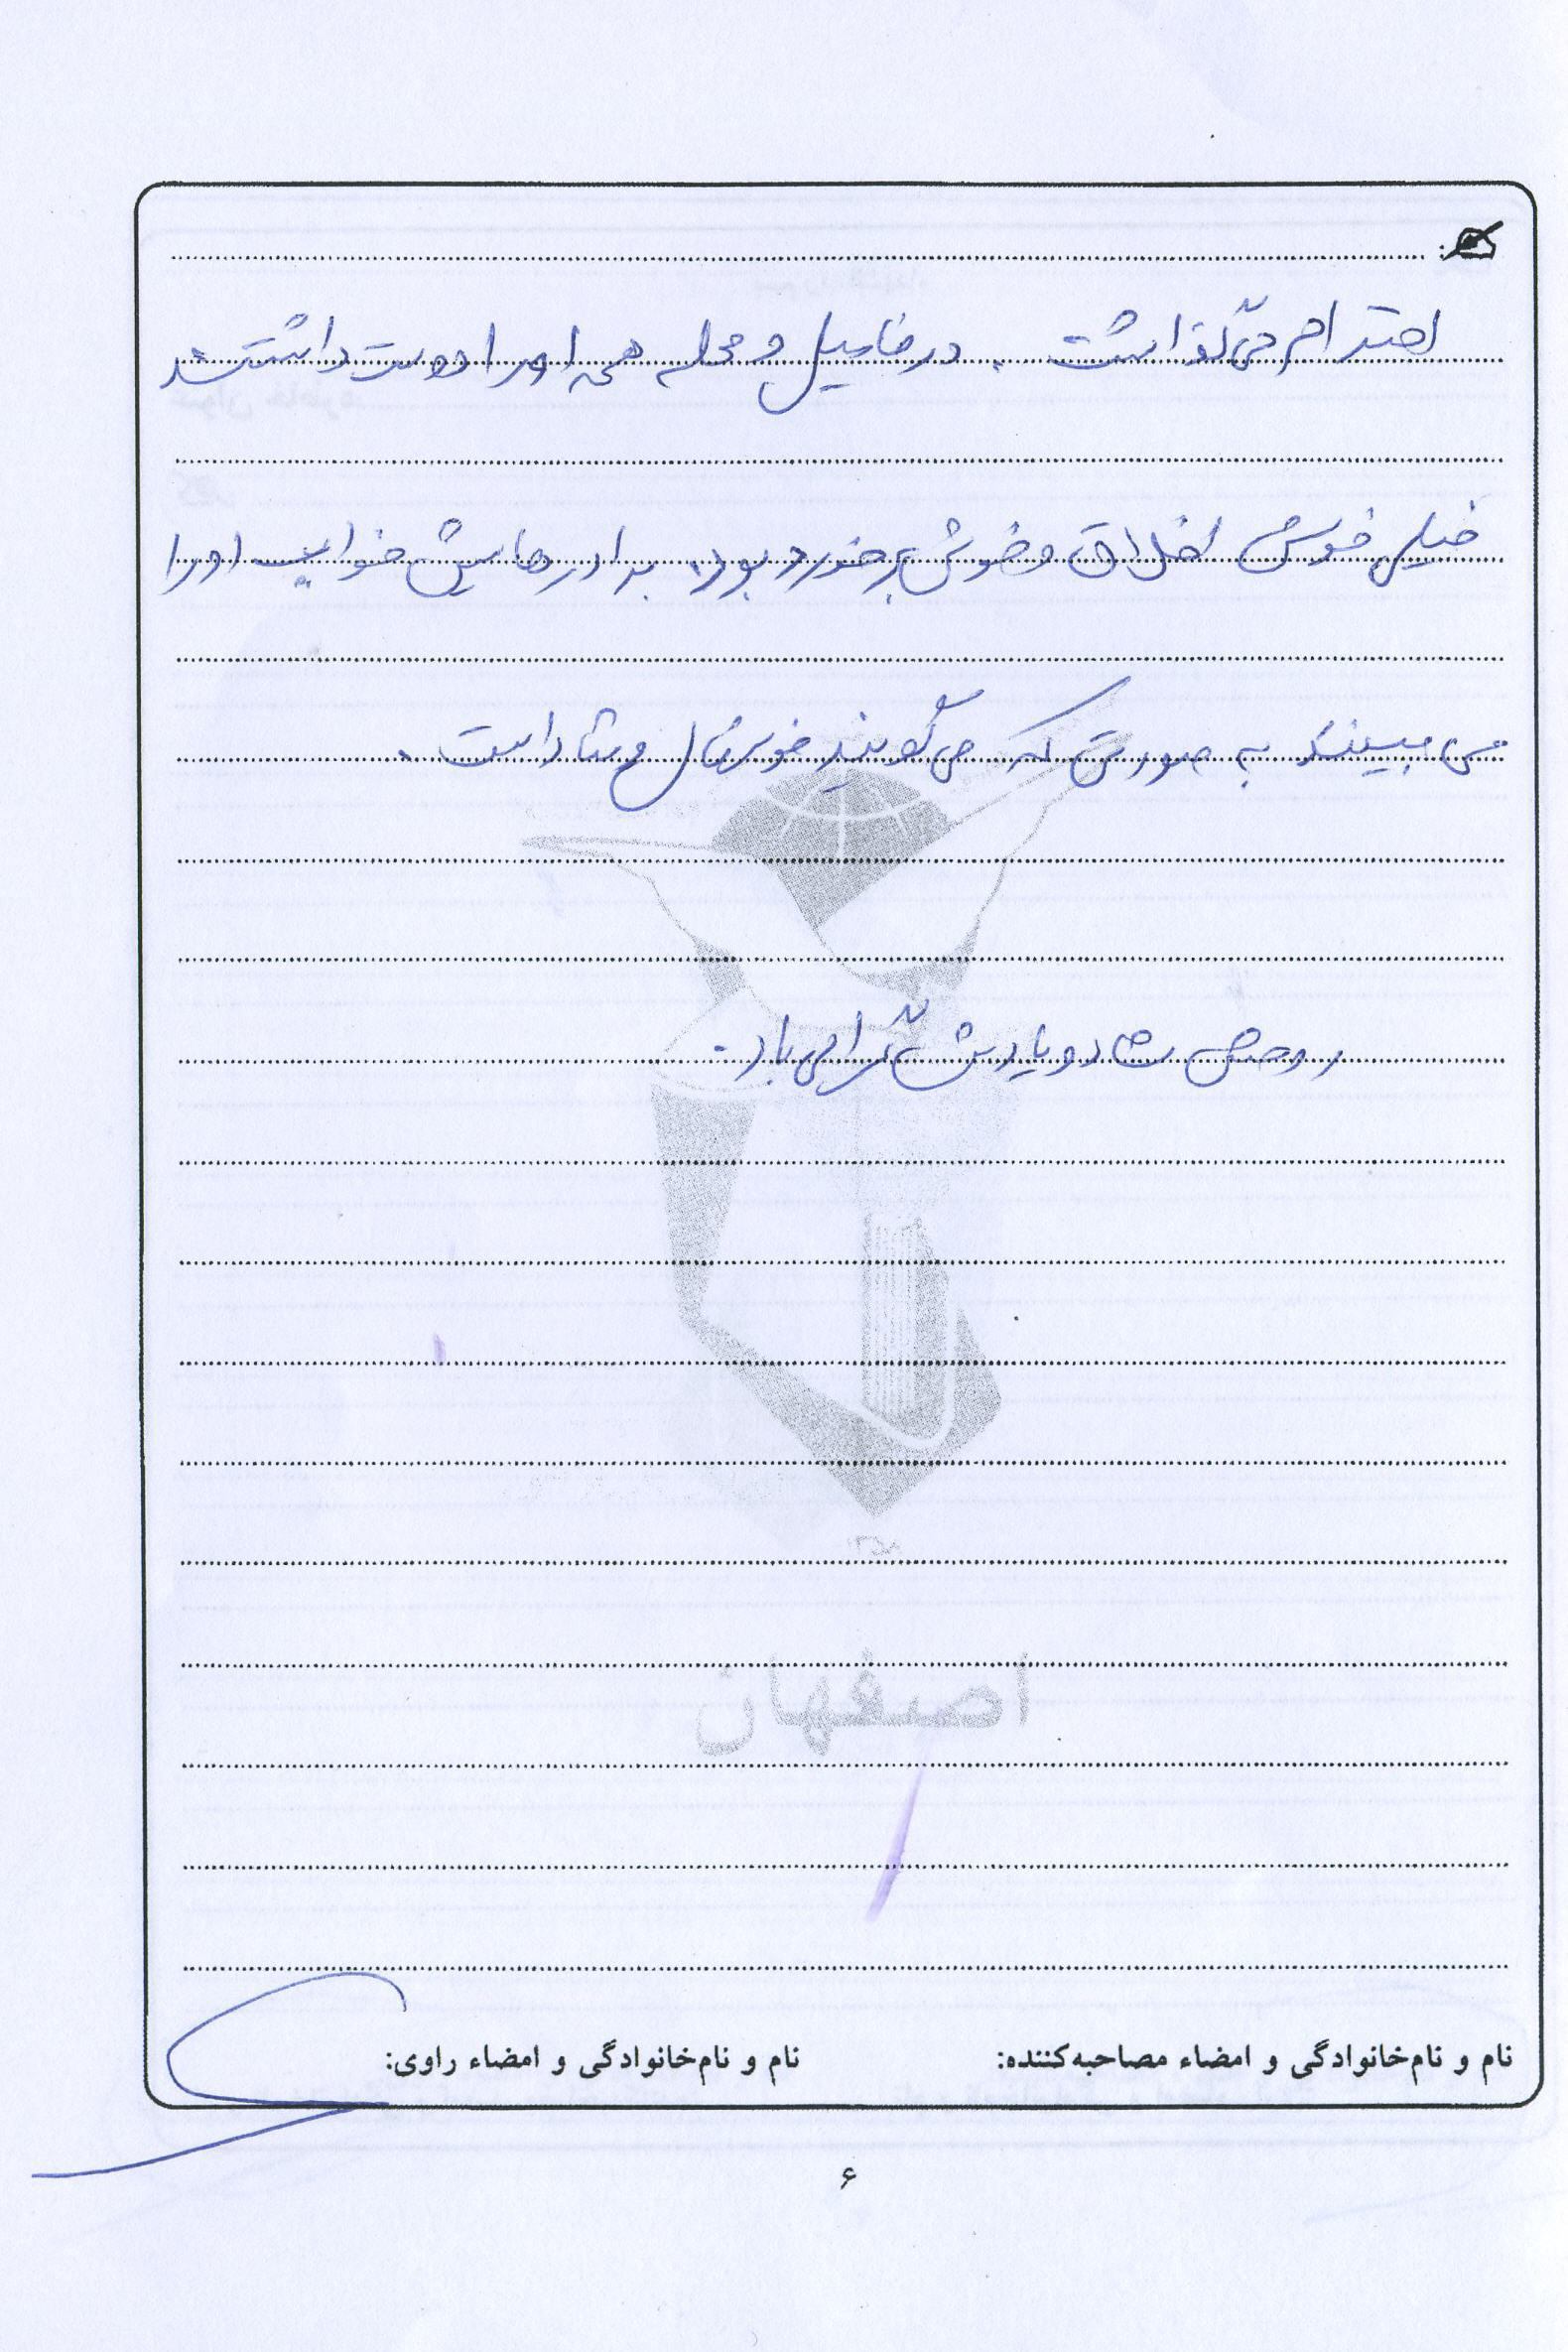 احترام می‌گذاشت . در فامیل و محله همه او را دوست داشتند
خیلی خوش اخلاق و خوش برخورد بود. برادرهایش خواب او را
می بینند به صورتی که می‌گویند خوشحال و شاد است .
روحش شاد و یادش گرامی باد .
اصفهان
نام و نام‌خانوادگی و امضاء مصاحبه‌کننده: نام و نام‌خانوادگی و امضاء راوی:
۶